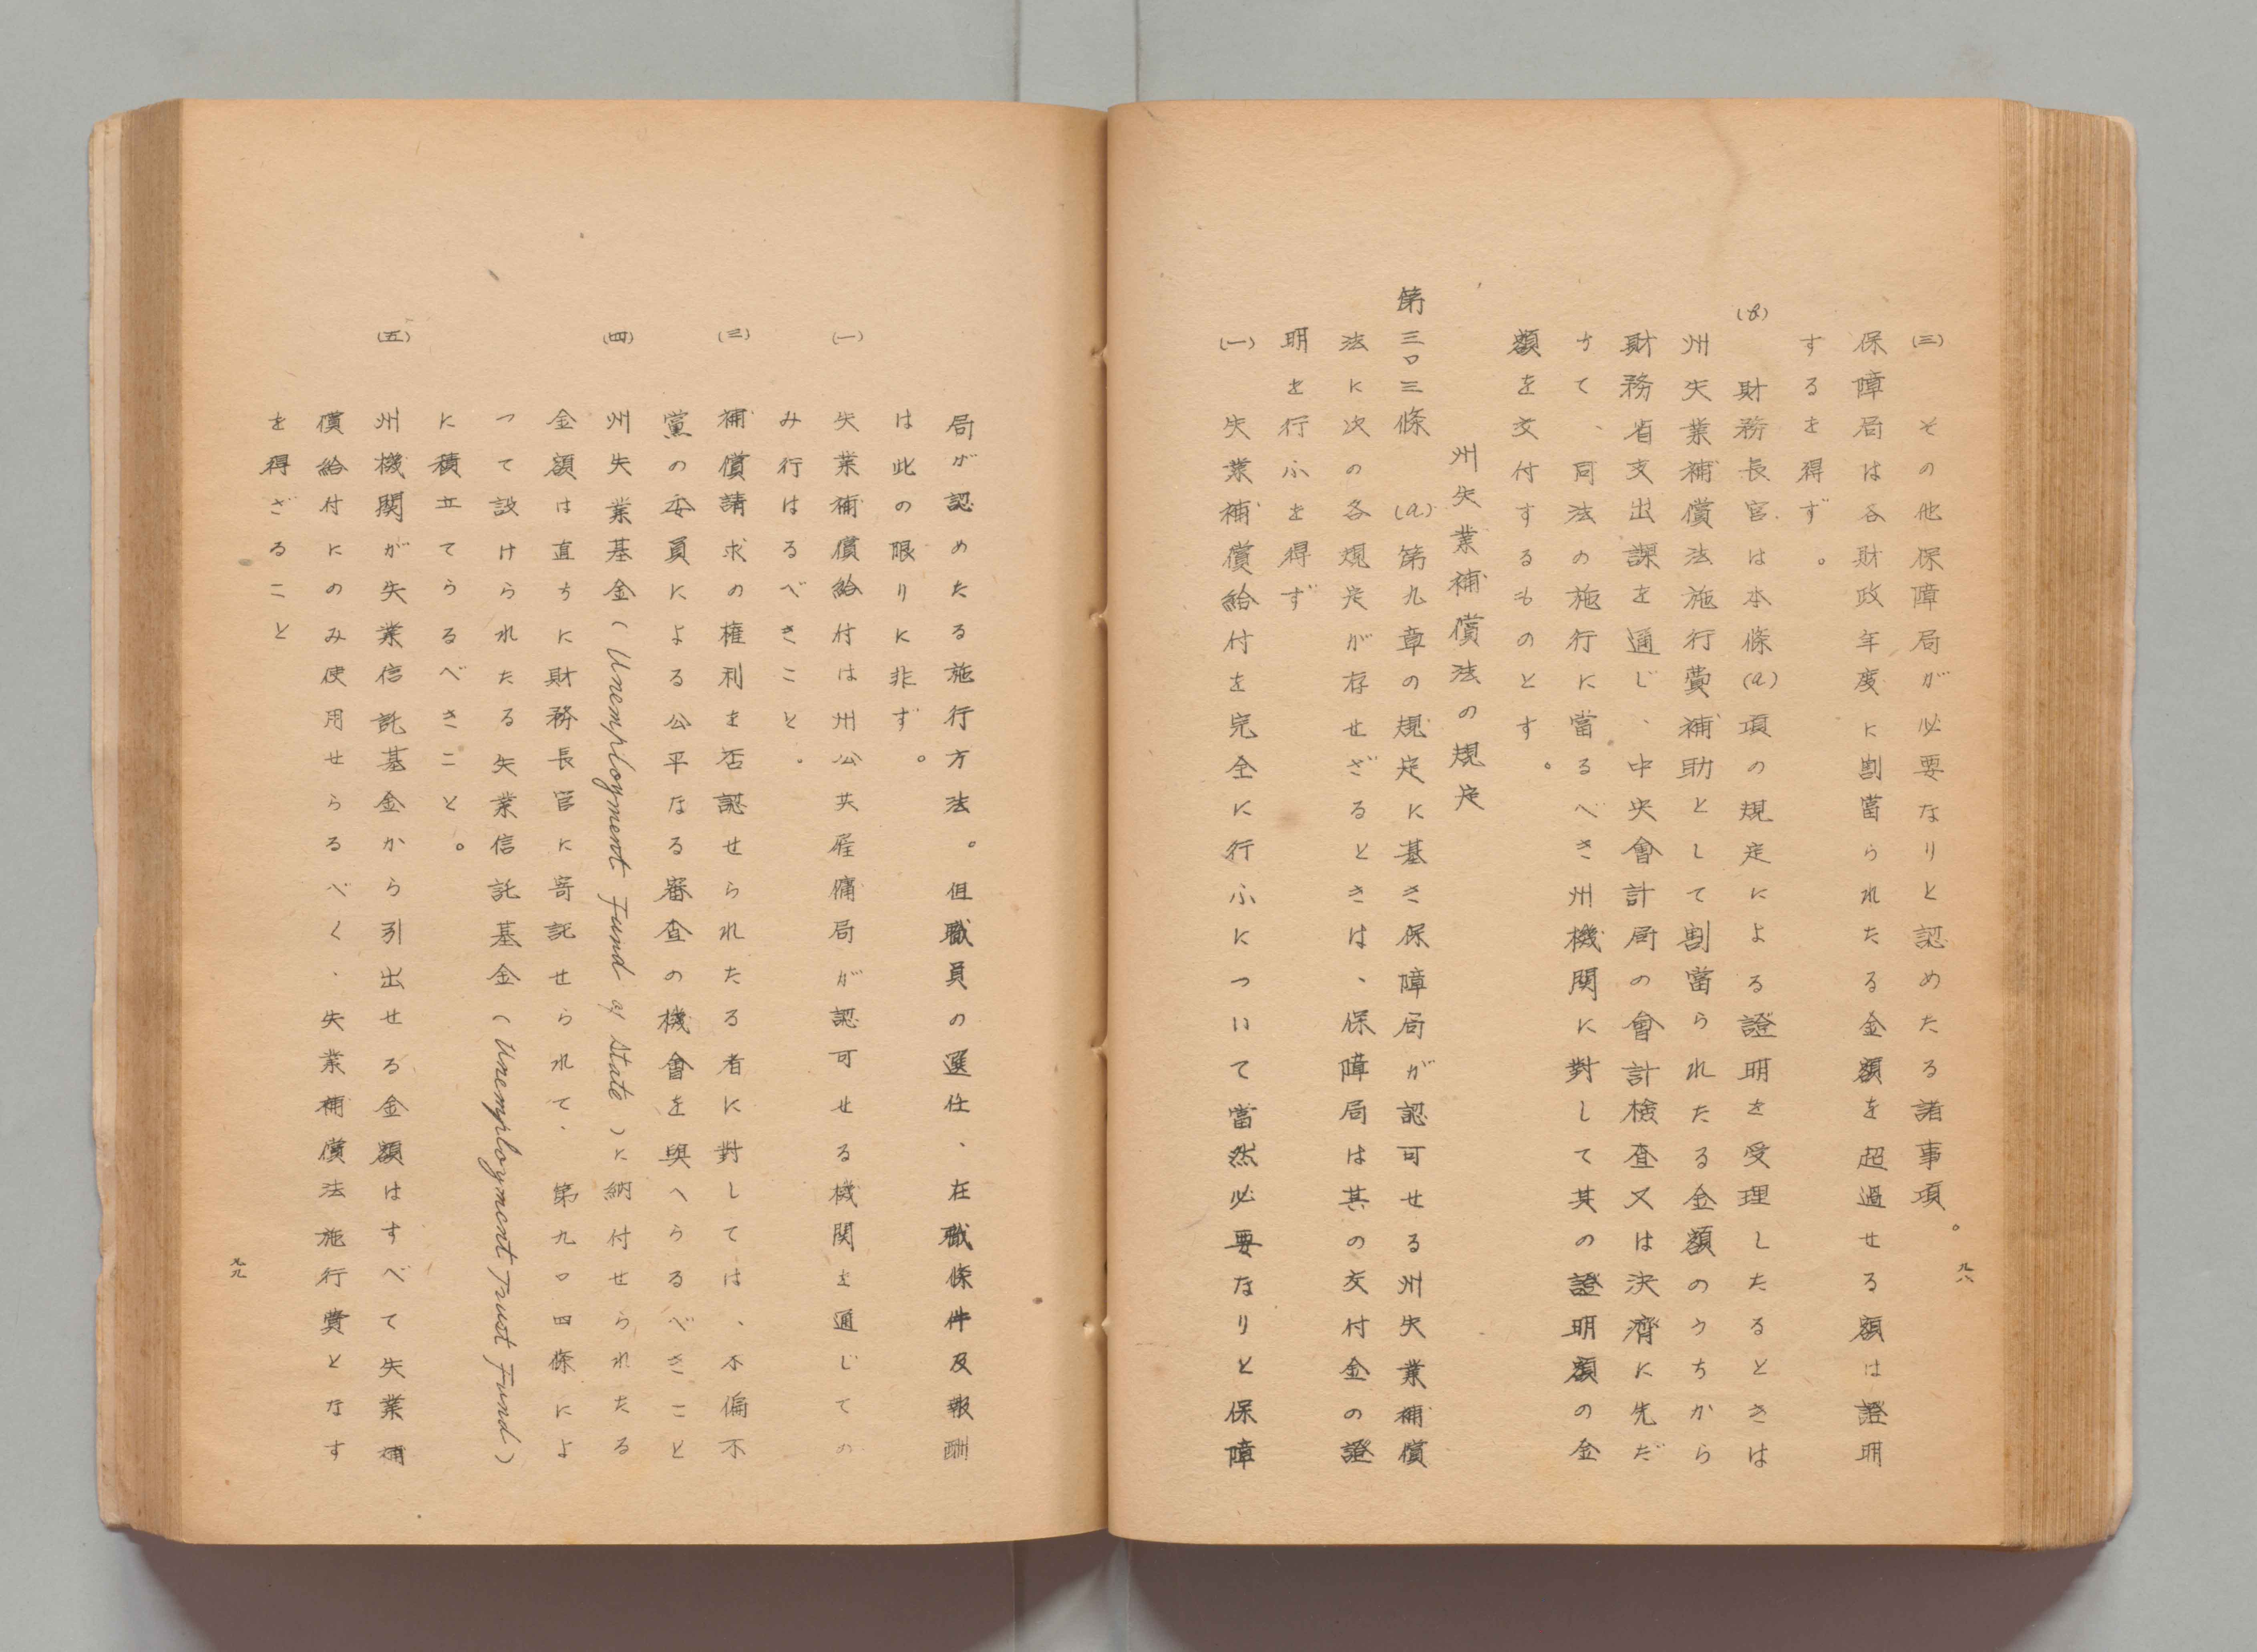 九八
(三) その他保障局が必要なりと認めたる諸事項。
保障局は各財政年度に割當られたる金額を超過せる額は證明
するを得ず。
(b) 財務長官は本條(a)項の規定による證明を受理したるときは
州失業補償法施行費補助として割當られたる金額のうちから
財務省支出課を通じ、中央會計局の會計檢査又は決濟に先だ
ちて、同法の施行に當るべき州機関に對して其の證明額の金
額を交付するものとす。
州失業補償法の規定
第三〇三條 (a)第九章の規定に基き保障局が認可せる州失業補償
法に次の各規定が存せざるときは、保障局は其の交付金の證
明を行ふを得ず
(一) 失業補償給付を完全に行ふについて當然必要なりと保障
局が認めたる施行方法。但職員の選任、在職條件及報酬
は此の限りに非ず。
(一) 失業補償給付は州公共雇傭局が認可せる機関を通じての
み行はるべきこと。
(三) 補償請求の権利を否認せられたる者に對しては、不偏不
黨の委員による公平なる審査の機會を與へらるべきこと
(四) 州失業基金(Unemployment Fund of State)に納付せられたる
金額は直ちに財務長官に寄託せられて、第九〇四條によ
つて設けられたる失業信託基金(Unemployment Trust Fund)
に積立てらるべきこと。
(五) 州機関が失業信託基金から引出せる金額はすべて失業補
償給付にのみ使用せらるべく、失業補償法施行費となす
を得ざること
九九